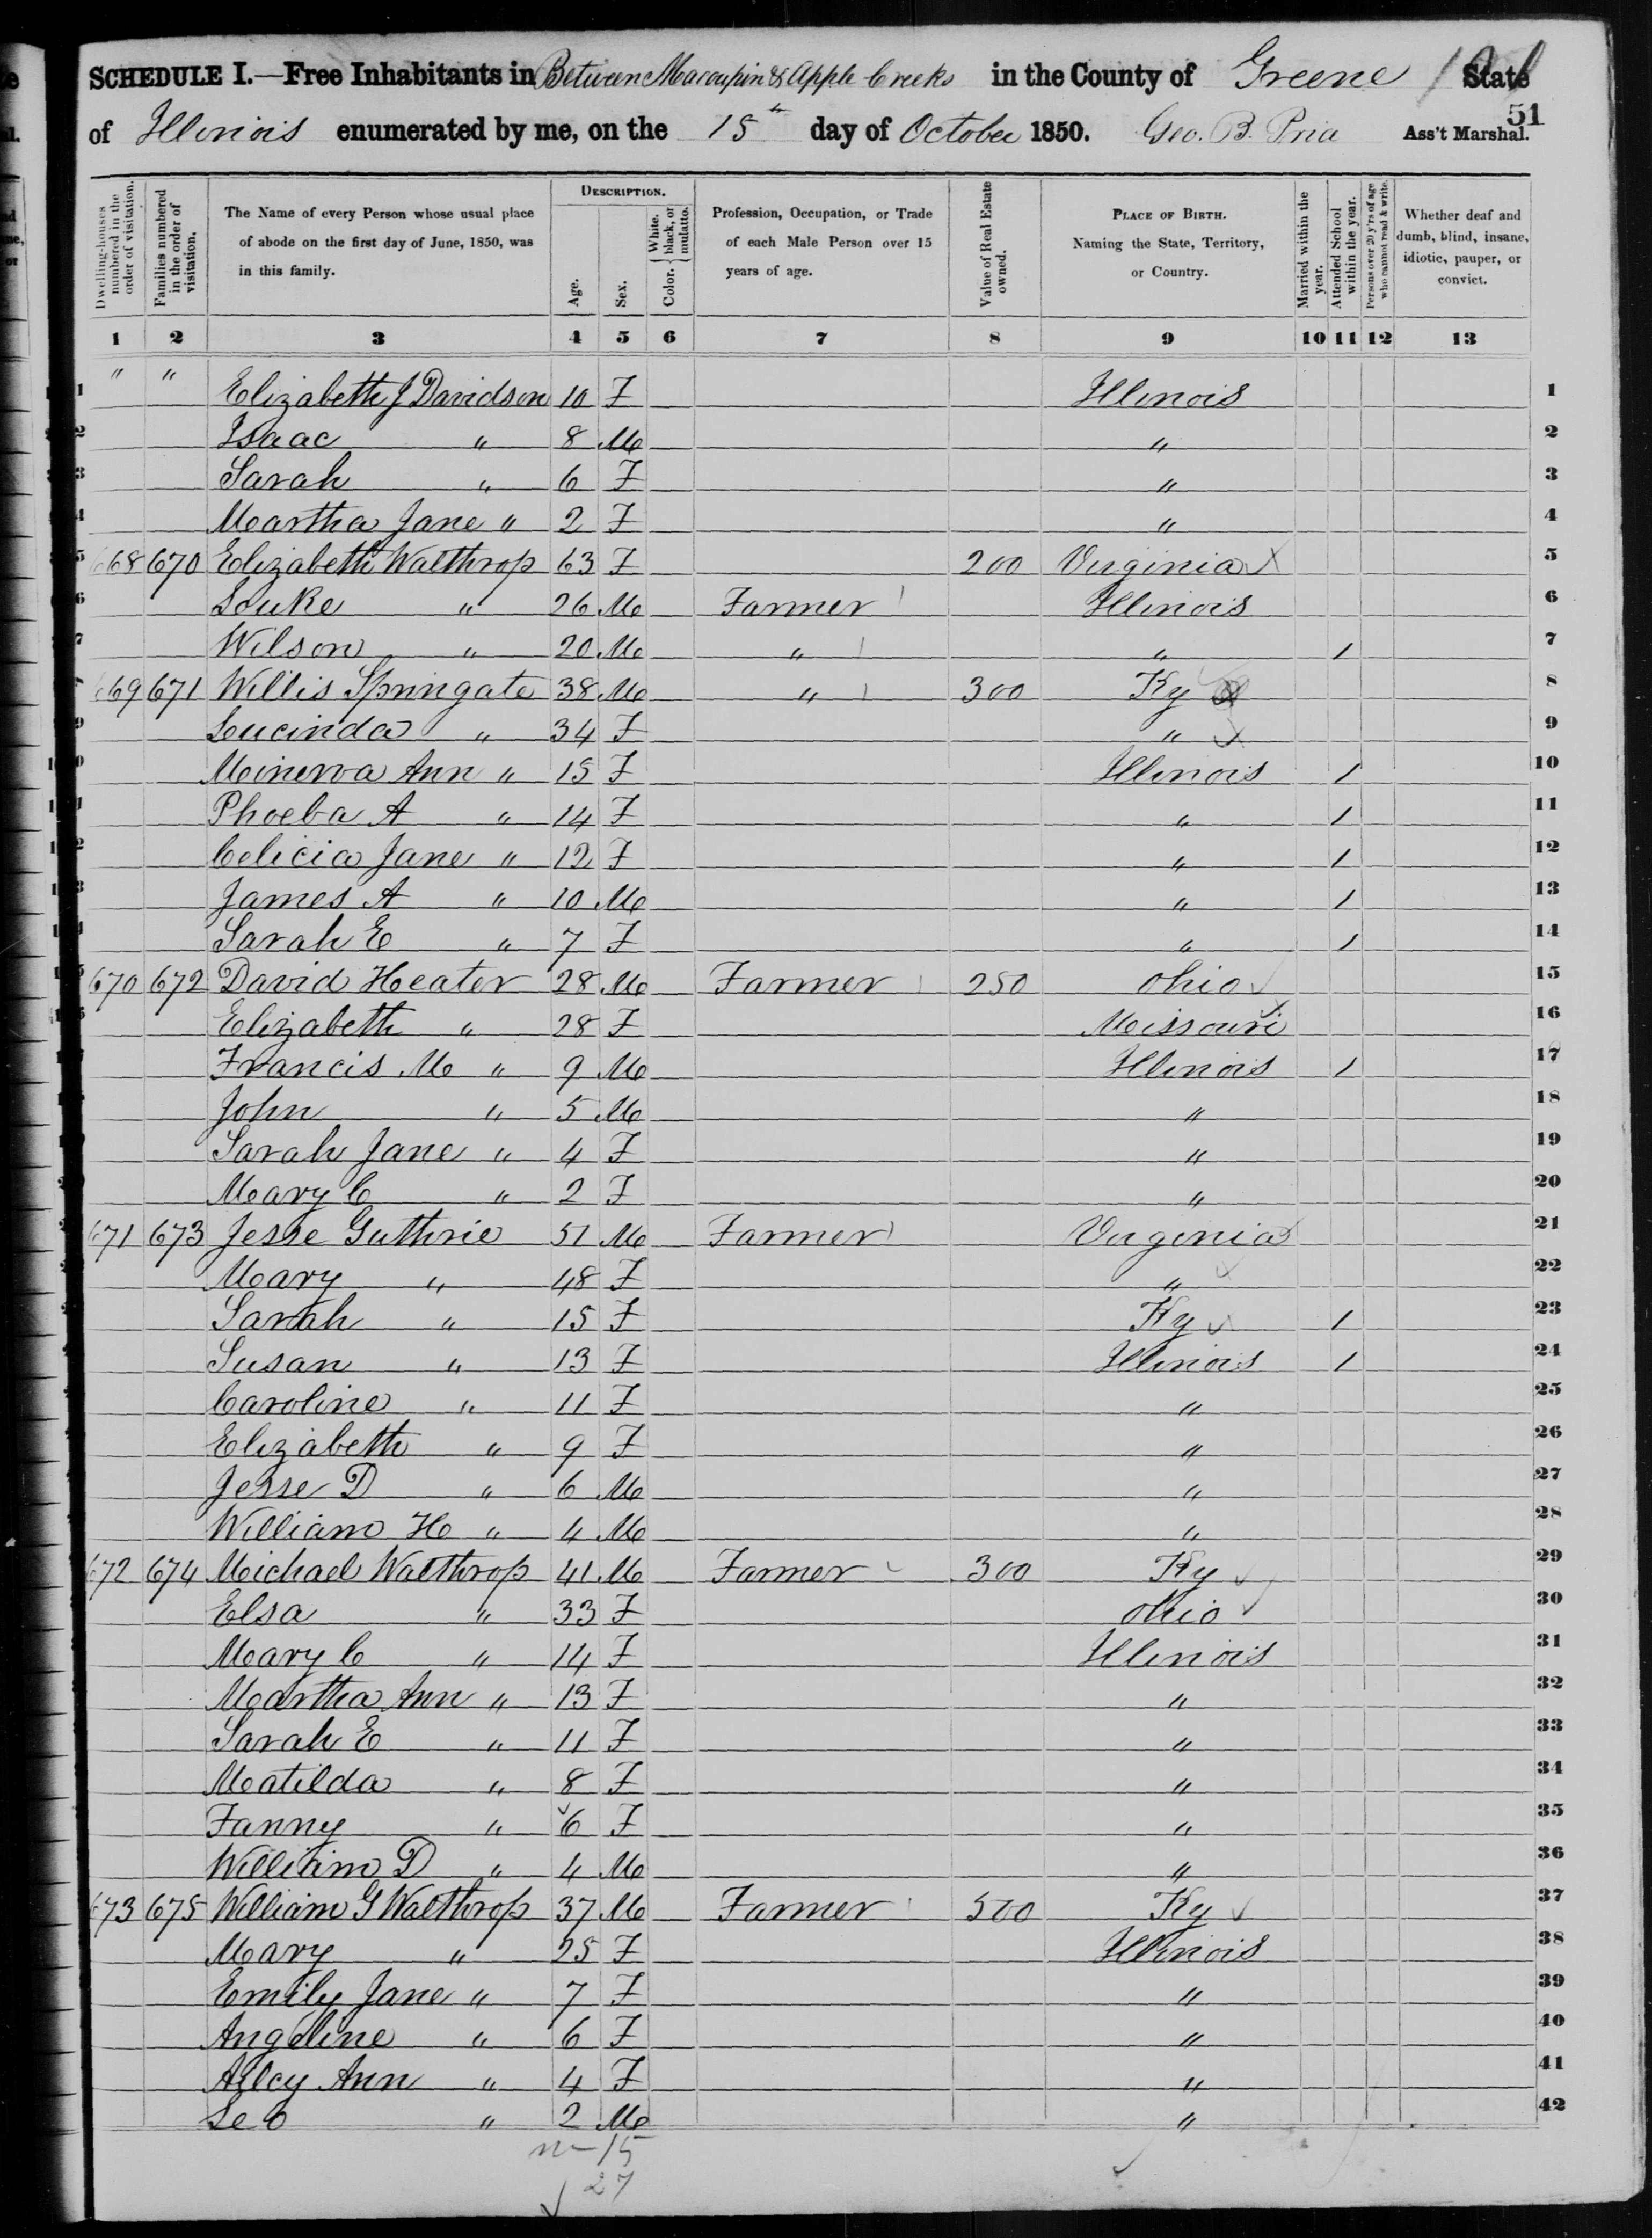 SCHEDULE I.—Free Inhabitants in Between Macoupin & Apple Creeks in the County of Greene State
51
of Illinois enumerated by me, on the 15th day of October 1850. Geo. B. Ass't Marshal.
Dwelling-houses numbered in the order of visitation.
Families numbered in the order of visitation.
The Name of every Person whose usual place of abode on the first day of June, 1850, was in this family.
DESCRIPTION.
Age.
Sex.
Color. { White, black, or mulatto.
Profession, Occupation, or Trade of each Male Person over 15 years of age.
Value of Real Estate owned.
PLACE OF BIRTH. Naming the State, Territory, or Country.
Married within the year.
Attended School within the year.
Persons over 20 y'rs of age who cannot read & write.
Whether deaf and dumb, blind, insane, idiotic, pauper, or convict.
1 2 3 4 5 6 7 8 9 10 11 12 13
1 " " Elizabeth J Davidson 10 F Illinois 1
2 Isaac " 8 M " 2
3 Sarah " 6 F " 3
4 Martha Jane " 2 F " 4
5 668 670 Elizabeth Walthrop 63 F 200 Virginia 5
6 Louke " 26 M Farmer Illinois 6
7 Wilson " 20 M " " 1 7
669 671 Willis Springate 38 M " 300 Ky 8
9 Lucinda " 34 F " 9
Minerva Ann " 15 F Illinois 1 10
Phoeba A " 14 F " 1 11
Celicia Jane " 12 F " 1 12
James A " 10 M " 1 13
Sarah E " 7 F " 1 14
670 672 David Heater 28 M Farmer 250 Ohio 15
Elizabeth " 28 F Missouri 16
Francis M " 9 M Illinois 1 17
John " 5 M " 18
Sarah Jane " 4 F " 19
Mary C " 2 F " 20
671 673 Jesse Guthrie 51 M Farmer Virginia 21
Mary " 48 F " 22
Sarah " 15 F Ky 1 23
Susan " 13 F Illinois 1 24
Caroline " 11 F " 25
Elizabeth " 9 F " 26
Jesse D " 6 M " 27
William H " 4 M " 28
672 674 Michael Walthrop 41 M Farmer 300 Ky 29
Elsa " 33 F Ohio 30
Mary C " 14 F Illinois 31
Martha Ann " 13 F " 32
Sarah E " 11 F " 33
Matilda " 8 F " 34
Fanny " 6 F " 35
William D " 4 M " 36
673 675 William G Walthrop 37 M Farmer 500 Ky 37
Mary " 25 F Illinois 38
Emily Jane " 7 F " 39
Angeline " 6 F " 40
Ann " 4 F " 41
Leo " 2 M " 42
m-15
27